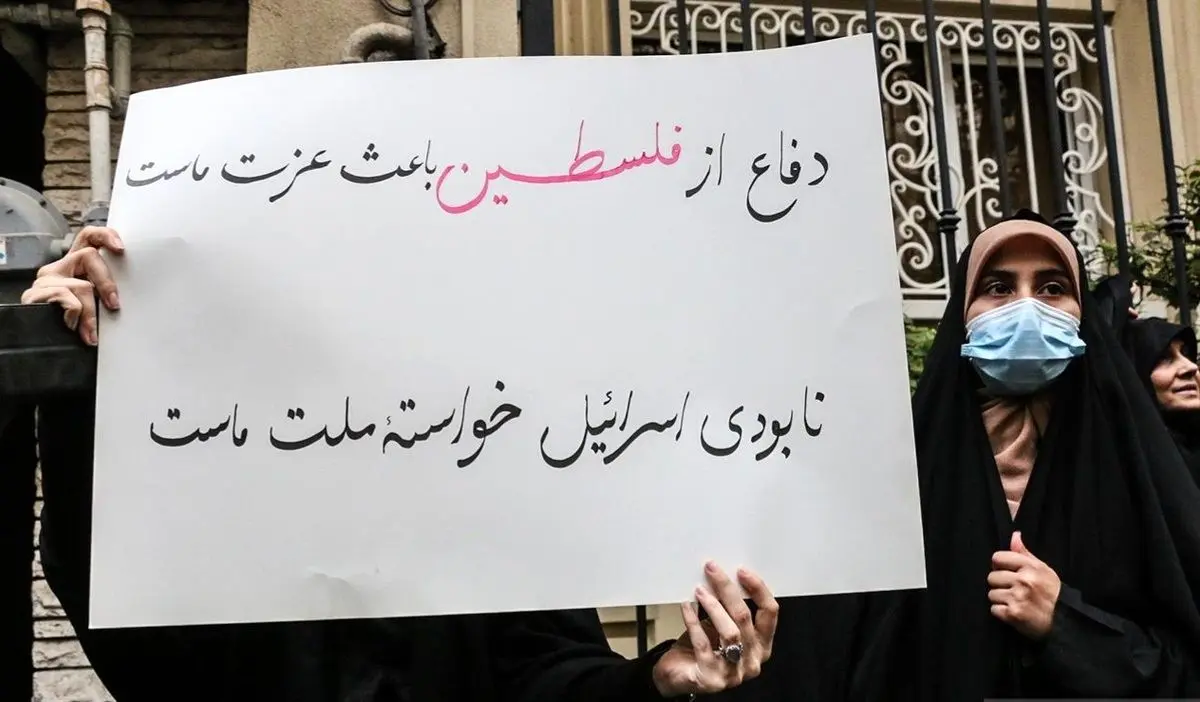 دفاع از فلسطین باعث عزت ماست
نابودی اسرائیل خواستهٔ ملت ماست